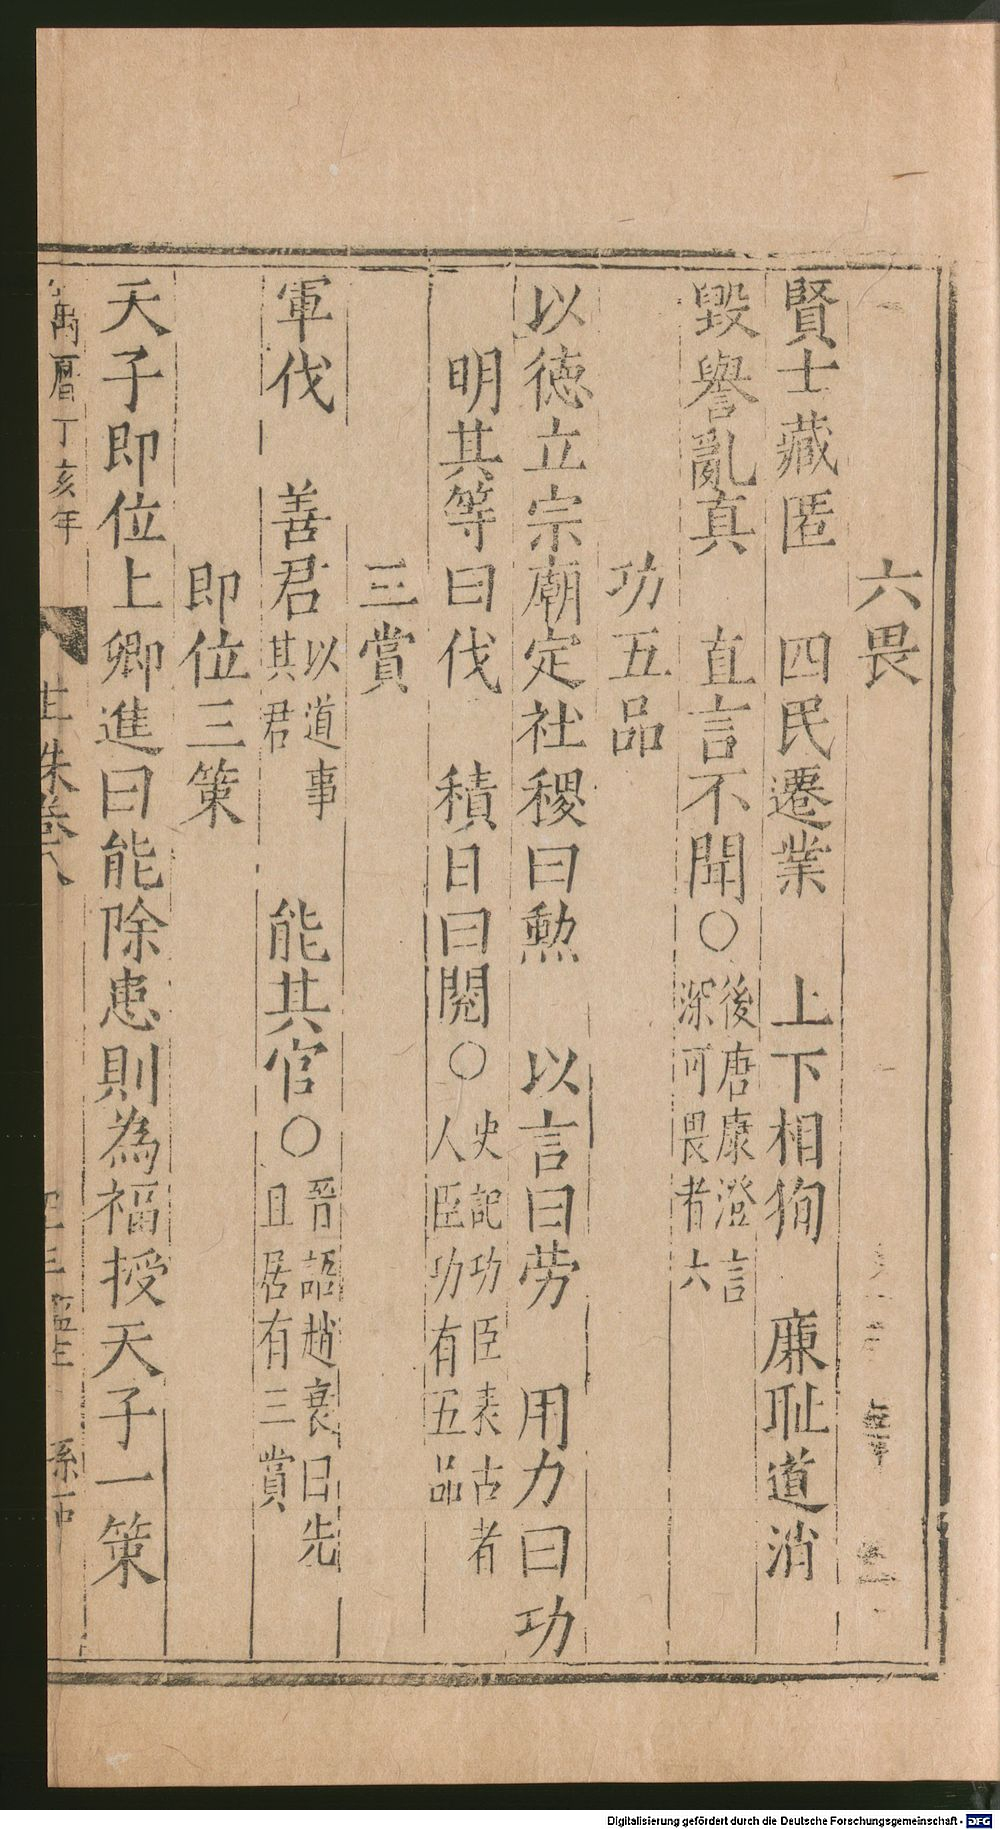 六畏
賢士藏匿 四民遷業 上下相狥 廉耻道消
毀譽亂真 直言不聞○後唐康澄言深可畏者六
功五品
以德立宗廟定社稷曰勲 以言曰劳 用力曰功
明其等曰伐 積日曰閱○史記功臣表古者人臣功有五品
三賞
軍伐 善君以道事其君 能其官○晉語趙衰曰先且居有三賞
即位三策
天子即位上卿進曰能除患則為福授天子一策
萬曆丁亥年 卷八 監生 孫
Digitalisierung gefördert durch die Deutsche Forschungsgemeinschaft - DFG